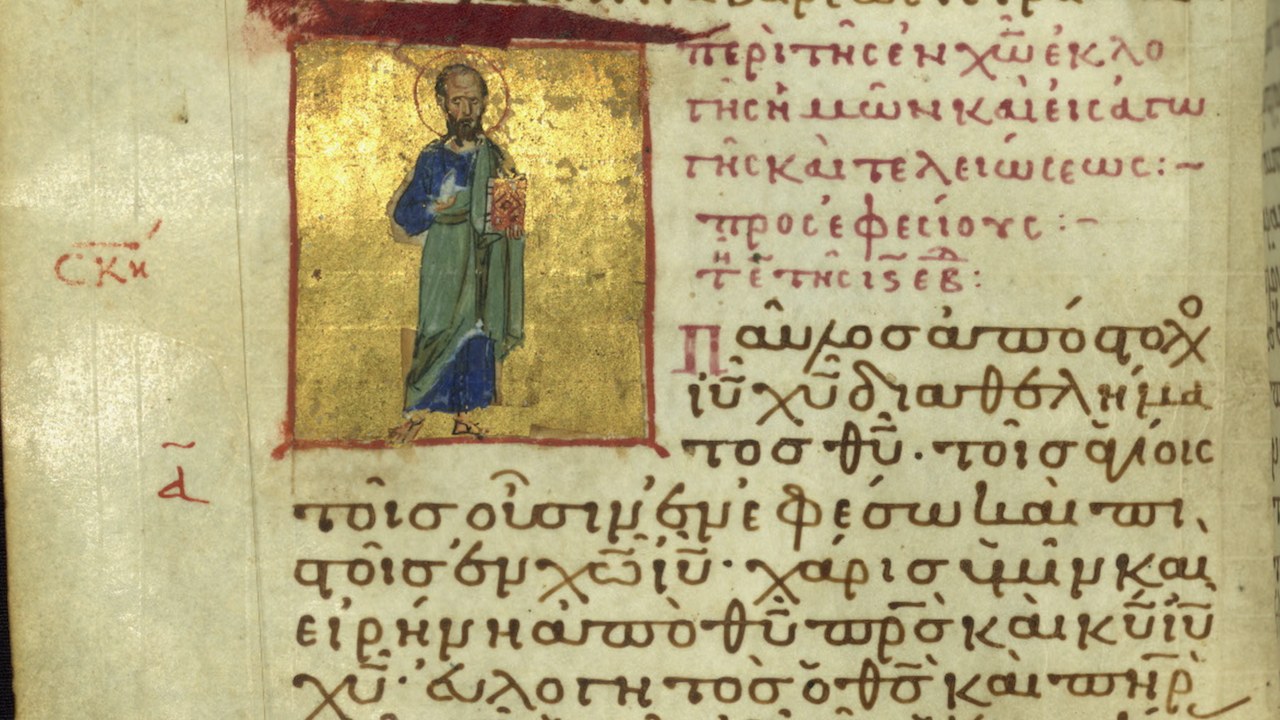 περὶ τῆς ἐν χω̅ ἐκλο
γῆς ἡμῶν καὶ εἰσαγω
γῆς καὶ τελειώσεως :~
προς ἐφεσίους :~
Παῦλος ἀπόστολο
ιυ̅ χυ̅ διὰ θελήμα
τος θυ̅· τοῖς ἁγίοις
τοῖς οὖσιν ἐν ἐφέσω καὶ πι
στοῖς ἐν χω̅ ιυ̅· χάρις ὑμῖν καὶ
εἰρήνη ἀπὸ θυ̅ πρ̅ς καὶ κυ̅ ιυ̅
χυ̅· εὐλογητὸς ὁ θς̅ καὶ πηρ̅